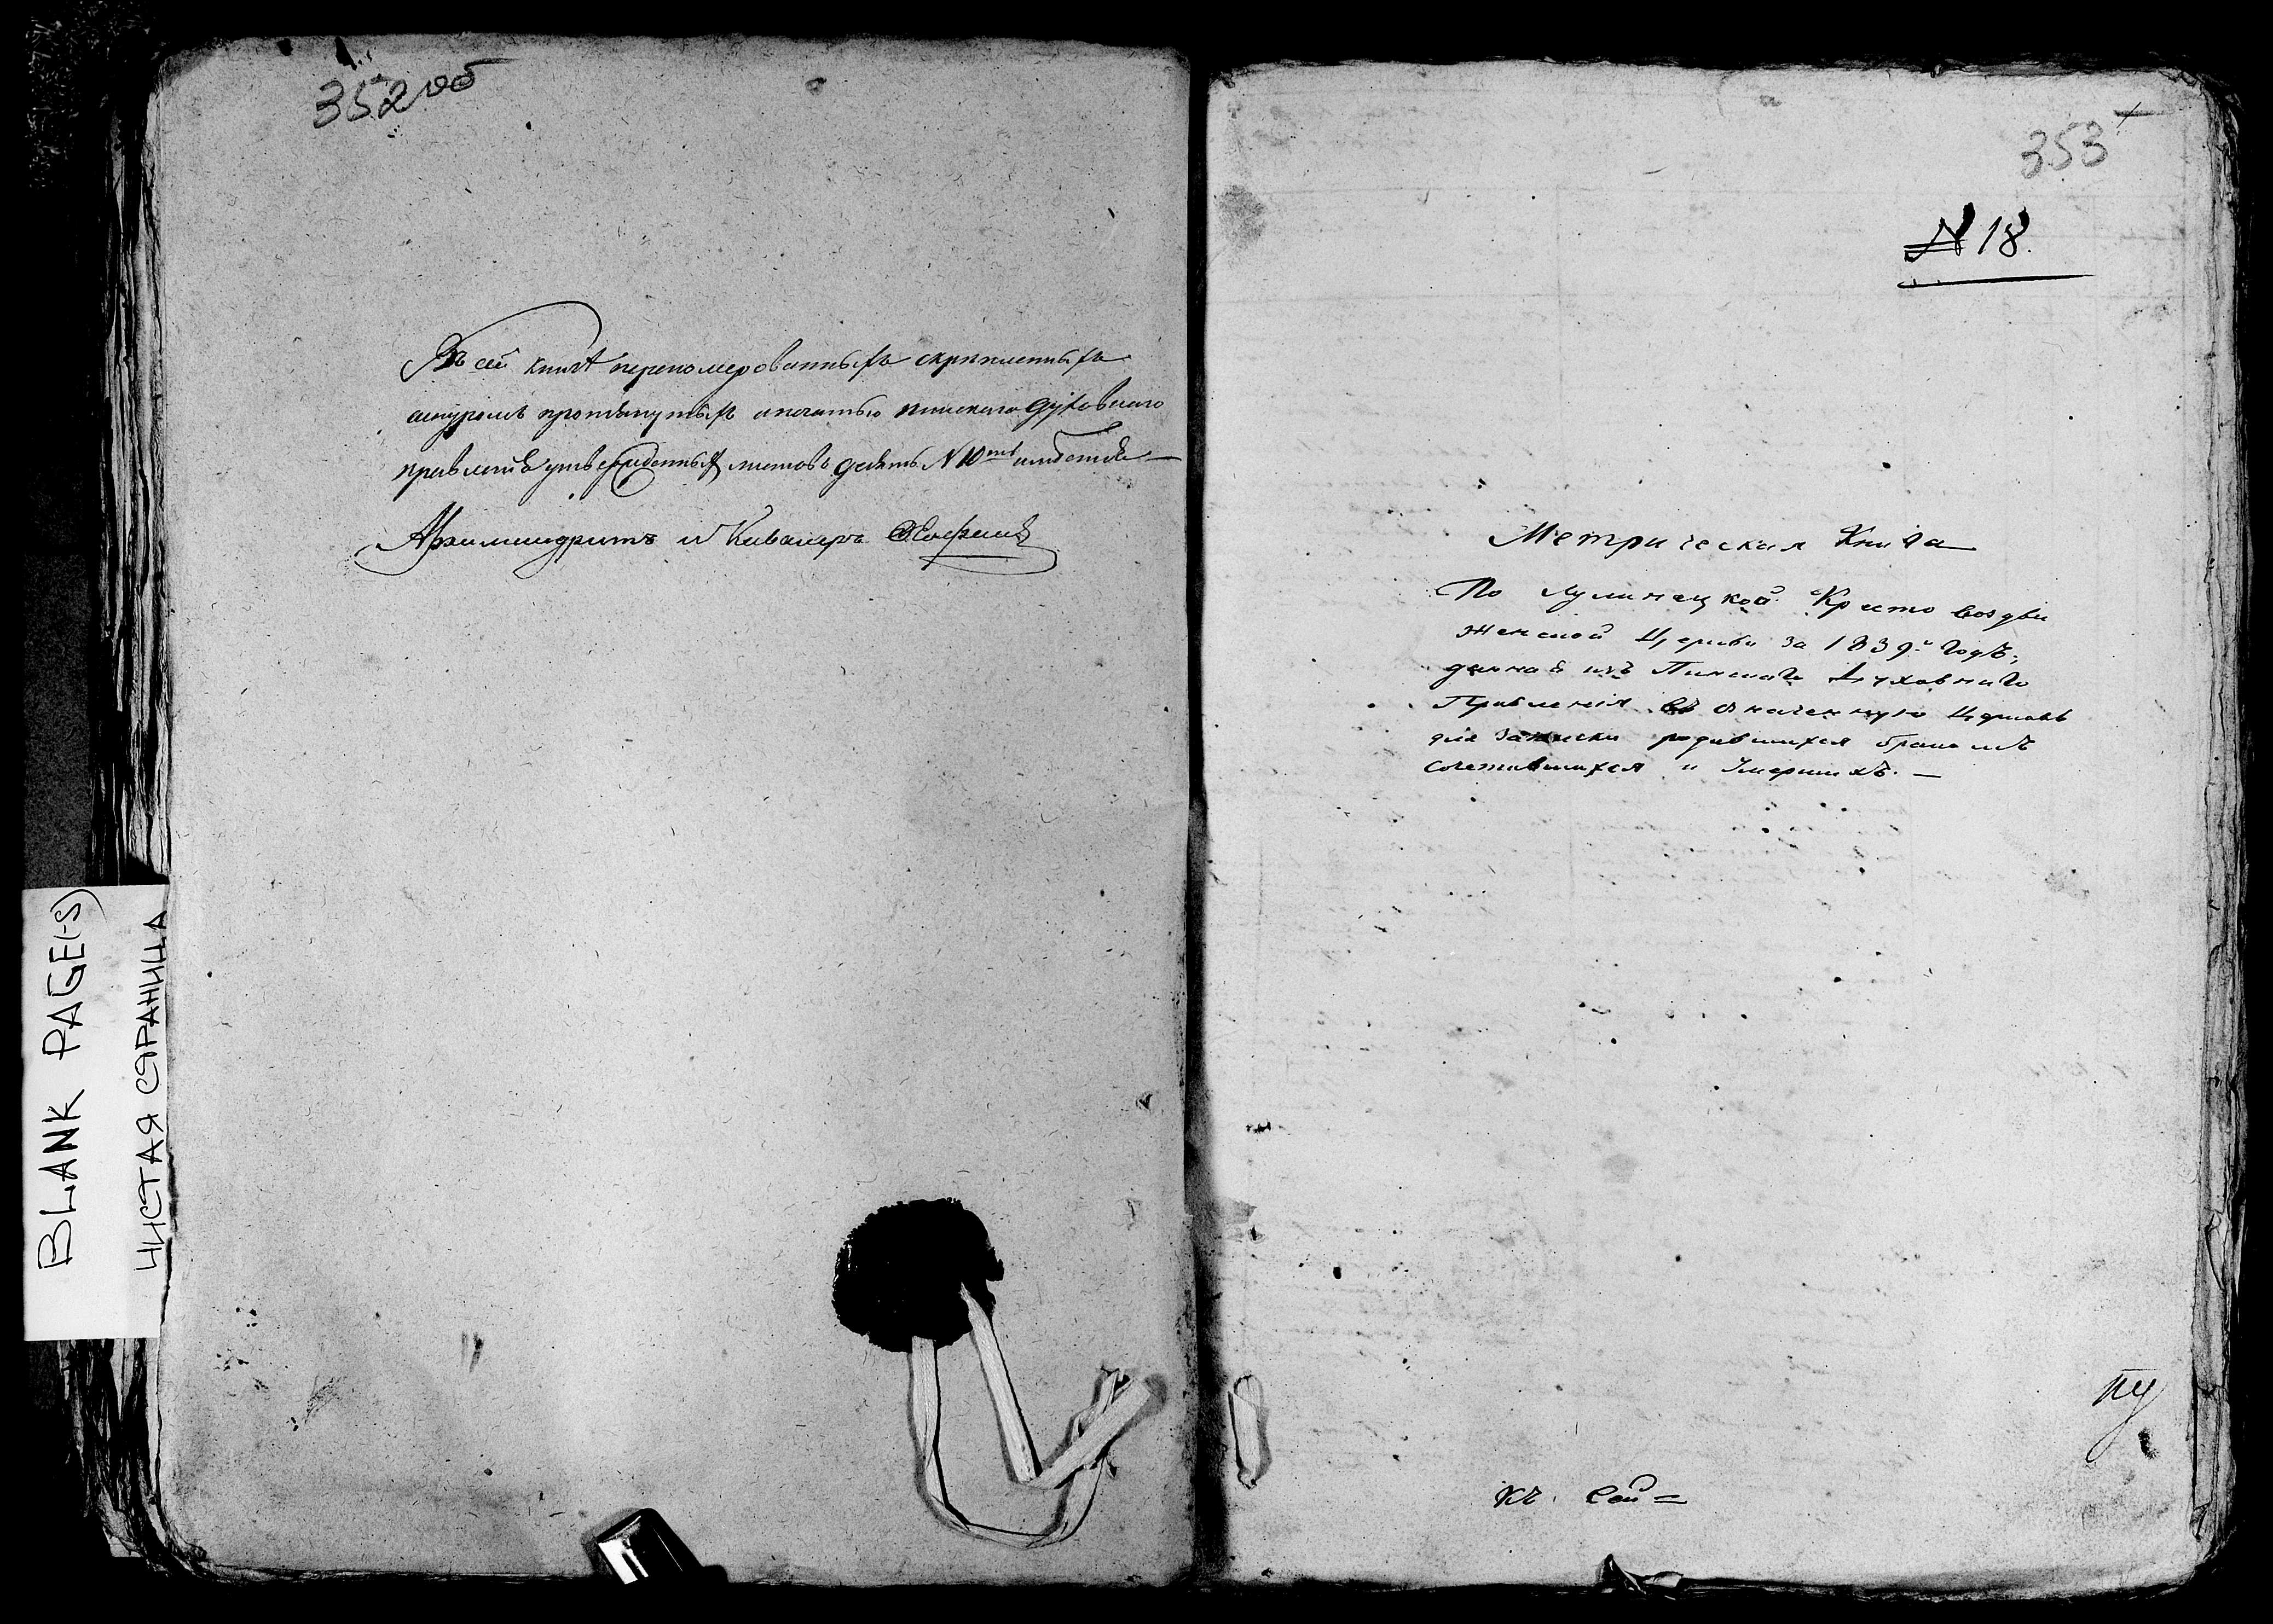 352 об
Въ сей книгѣ перепомерованныхъ скрѣпленныхъ
шнуромъ протянутыхъ и печатью пинскаго духовнаго
правленія утвержденныхъ листовъ десять N 10
Архимандритъ и Кавалеръ
BLANK PAGE(-S)
ЧИСТАЯ СТРАНИЦА
353
N 18.
Метрическая Книга
По Лулинецкой Кресто воздви
женской Церкви за 1839й годъ,
данная изъ Пинскаго Духовнаго
Правленія въ означенную Церковь
для записки родившихся бракомъ
сочетавшихся и Умершихъ. —
пу
къ сей =